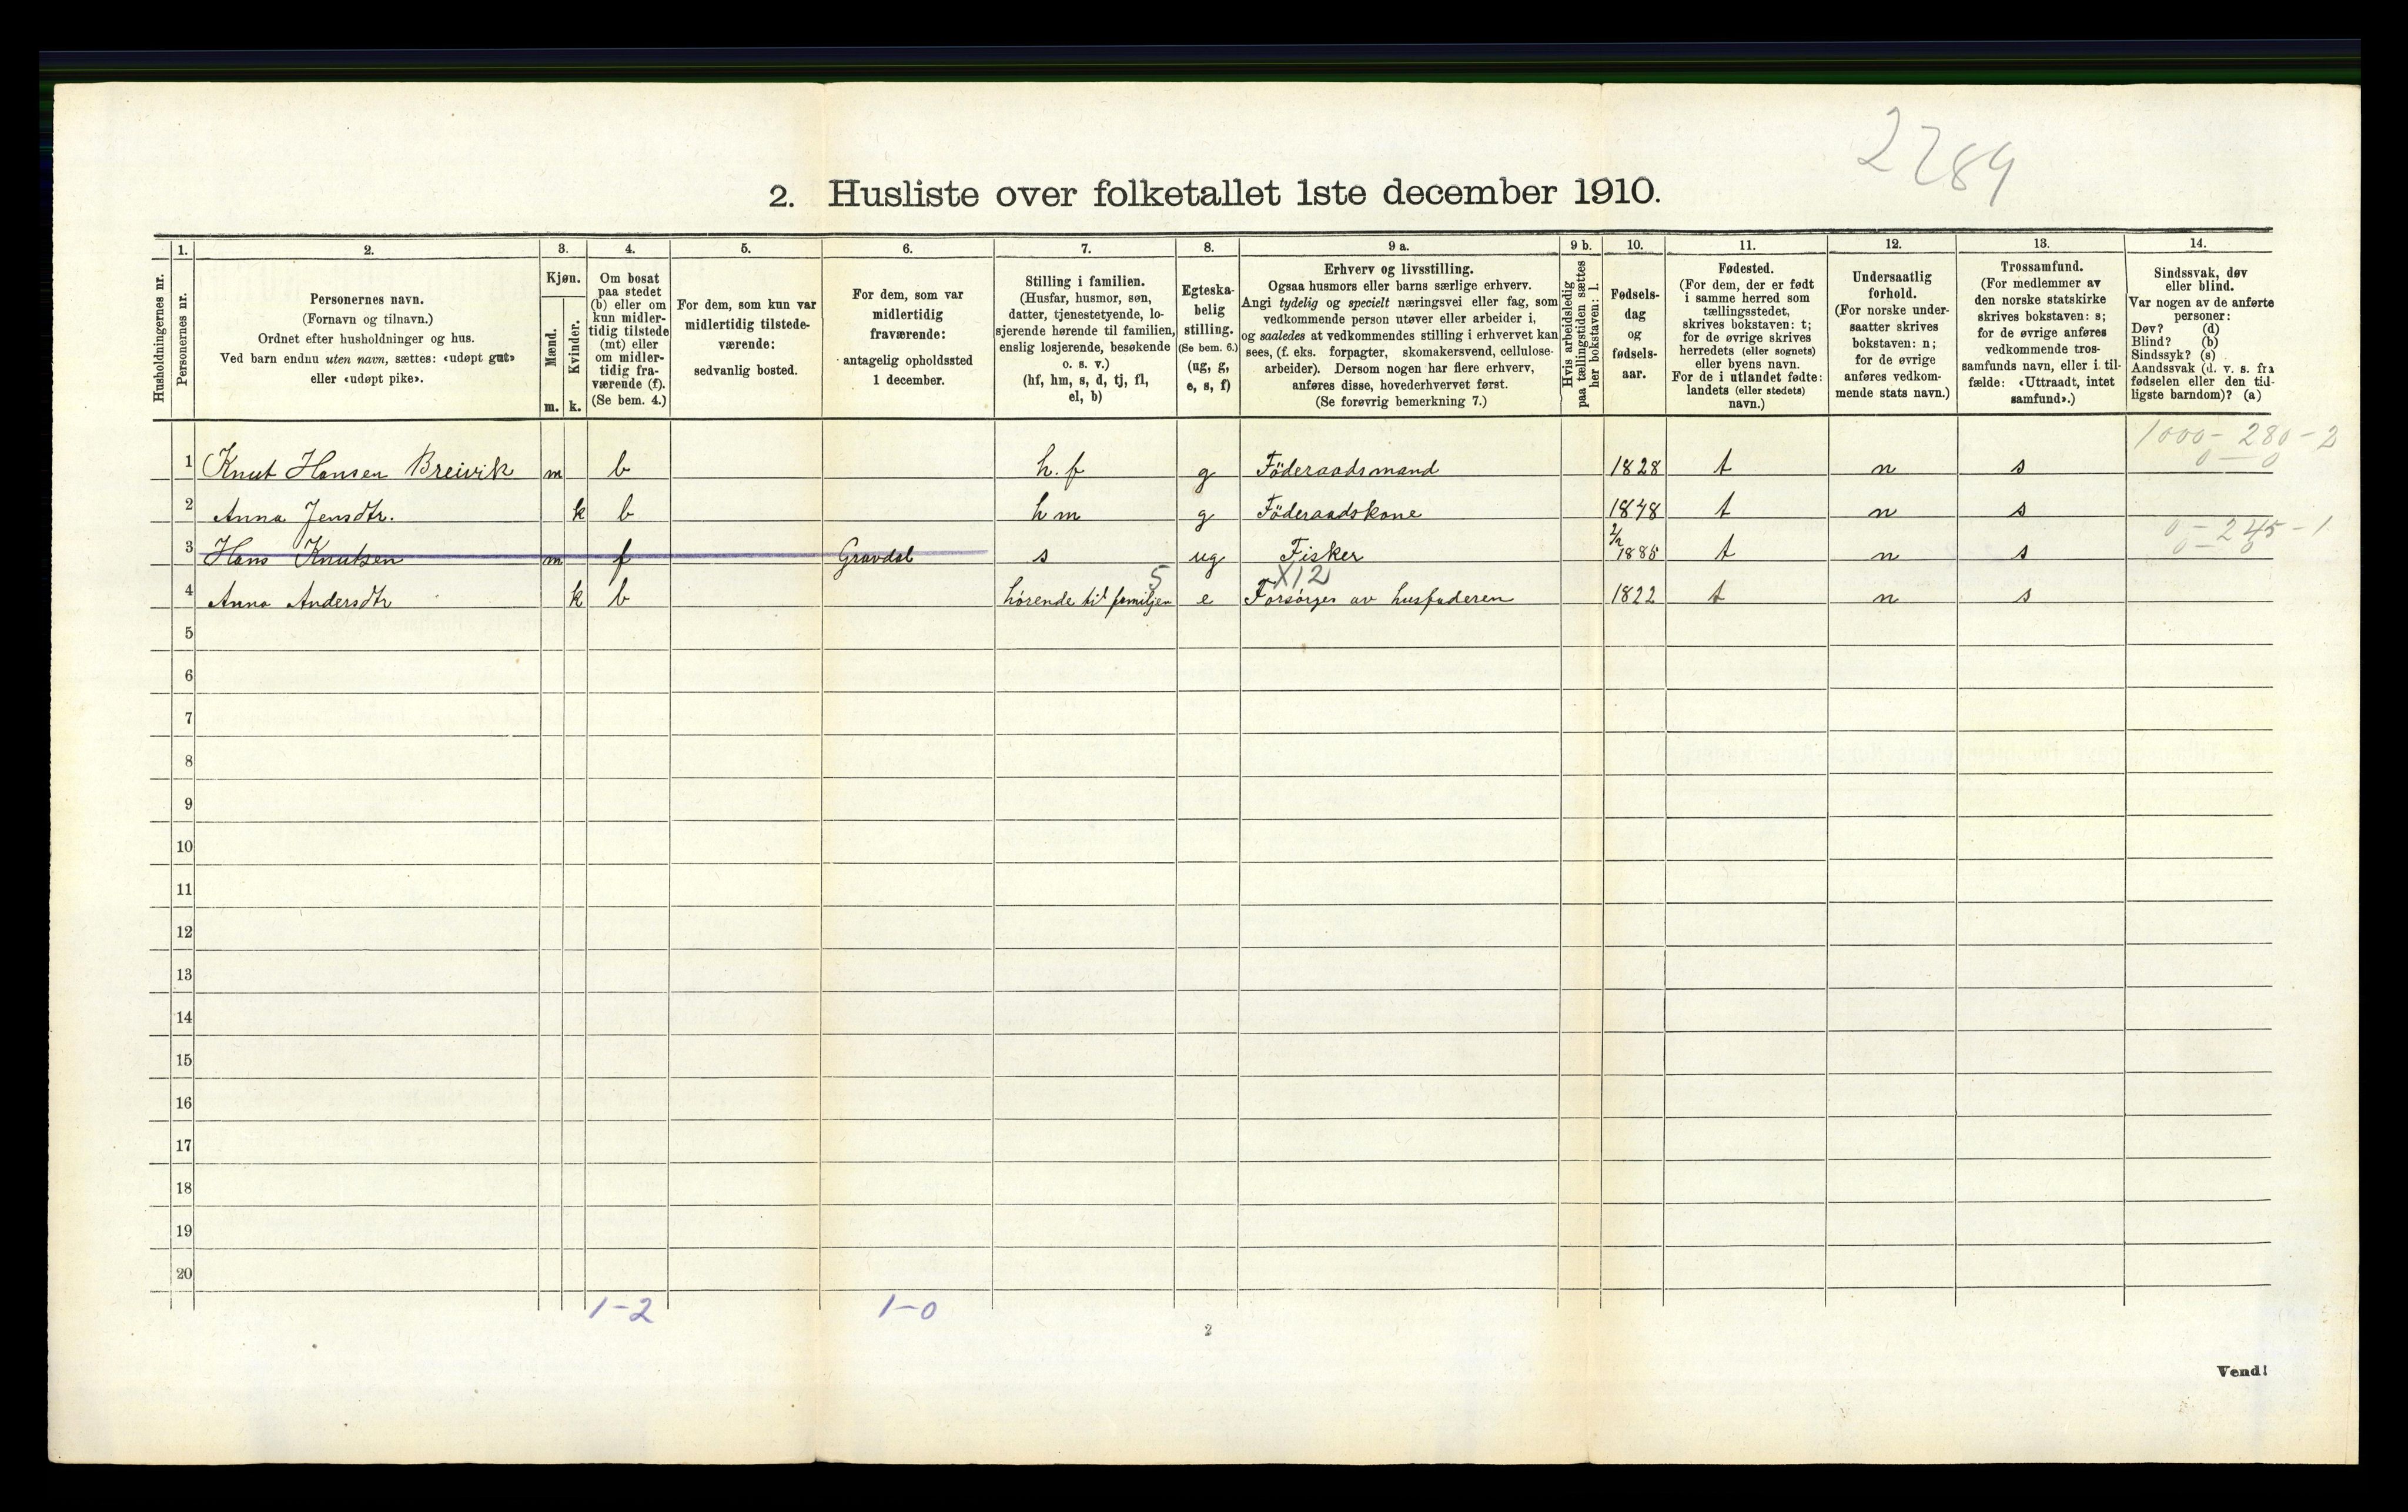 2284
2. Husliste over folketallet 1ste december 1910.
Husholdningernes nr.
1.
Personernes nr.
2.
Personernes navn.
(Fornavn og tilnavn.)
Ordnet efter husholdninger og hus.
Ved barn endnu uten navn, sættes: «udøpt gut»
eller «udøpt pike».
3.
Kjøn.
Mænd.
Kvinder.
m. k.
4.
Om bosat
paa stedet
(b) eller om
kun midler-
tidig tilstede
(mt) eller
om midler-
tidig fra-
værende (f).
(Se bem. 4.)
5.
For dem, som kun var
midlertidig tilstede-
værende:
sedvanlig bosted.
6.
For dem, som var
midlertidig
fraværende:
antagelig opholdssted
1 december.
7.
Stilling i familien.
(Husfar, husmor, søn,
datter, tjenestetyende, lo-
sjerende hørende til familien,
enslig losjerende, besøkende
o. s. v.)
(hf, hm, s, d, tj, fl,
el, b)
8.
Egteska-
belig
stilling.
(Se bem. 6.)
(ug, g,
e, s, f)
9 a.
Erhverv og livsstilling.
Ogsaa husmors eller barns særlige erhverv.
Angi tydelig og specielt næringsvei eller fag, som
vedkommende person utøver eller arbeider i,
og saaledes at vedkommendes stilling i erhvervet kan
sees, (f. eks. forpagter, skomakersvend, cellulose-
arbeider). Dersom nogen har flere erhverv,
anføres disse, hovederhvervet først.
(Se forøvrig bemerkning 7.)
9 b.
Hvis arbeidsledig
paa tællingstiden sættes
her bokstaven: l.
10.
Fødsels-
dag
og
fødsels-
aar.
11.
Fødested.
(For dem, der er født
i samme herred som
tællingsstedet,
skrives bokstaven: t;
for de øvrige skrives
herredets (eller sognets)
eller byens navn.
For de i utlandet fødte:
landets (eller stedets)
navn.)
12.
Undersaatlig
forhold.
(For norske under-
saatter skrives
bokstaven: n;
for de øvrige
anføres vedkom-
mende stats navn.)
13.
Trossamfund.
(For medlemmer av
den norske statskirke
skrives bokstaven: s;
for de øvrige anføres
vedkommende tros-
samfunds navn, eller i til-
fælde: «Uttraadt, intet
samfund».)
14.
Sindssvak, døv
eller blind.
Var nogen av de anførte
personer:
Døv? (d)
Blind? (b)
Sindssyk? (s)
Aandssvak (d. v. s. fra
fødselen eller den tid-
ligste barndom)? (a)
1000 - 280 - 2
0 - 0
1 Knut Hansen Breivik m b h. f g Föderaadsmand 1828 t n s
2 Anna Jensdtr. k b h m g Föderaadskone 1848 t n s
0 - 245 - 1
0 - 0
3 Hans Knutsen m f Gravdal s ug Fisker 1885 t n s
5 X12
4 Anna Andersdtr k b hørende til familjen e Forsörges av husfaderen 1822 t n s
5
6
7
8
9
10
11
12
13
14
15
16
17
18
19
20
1-2 1-0
2
Vend!